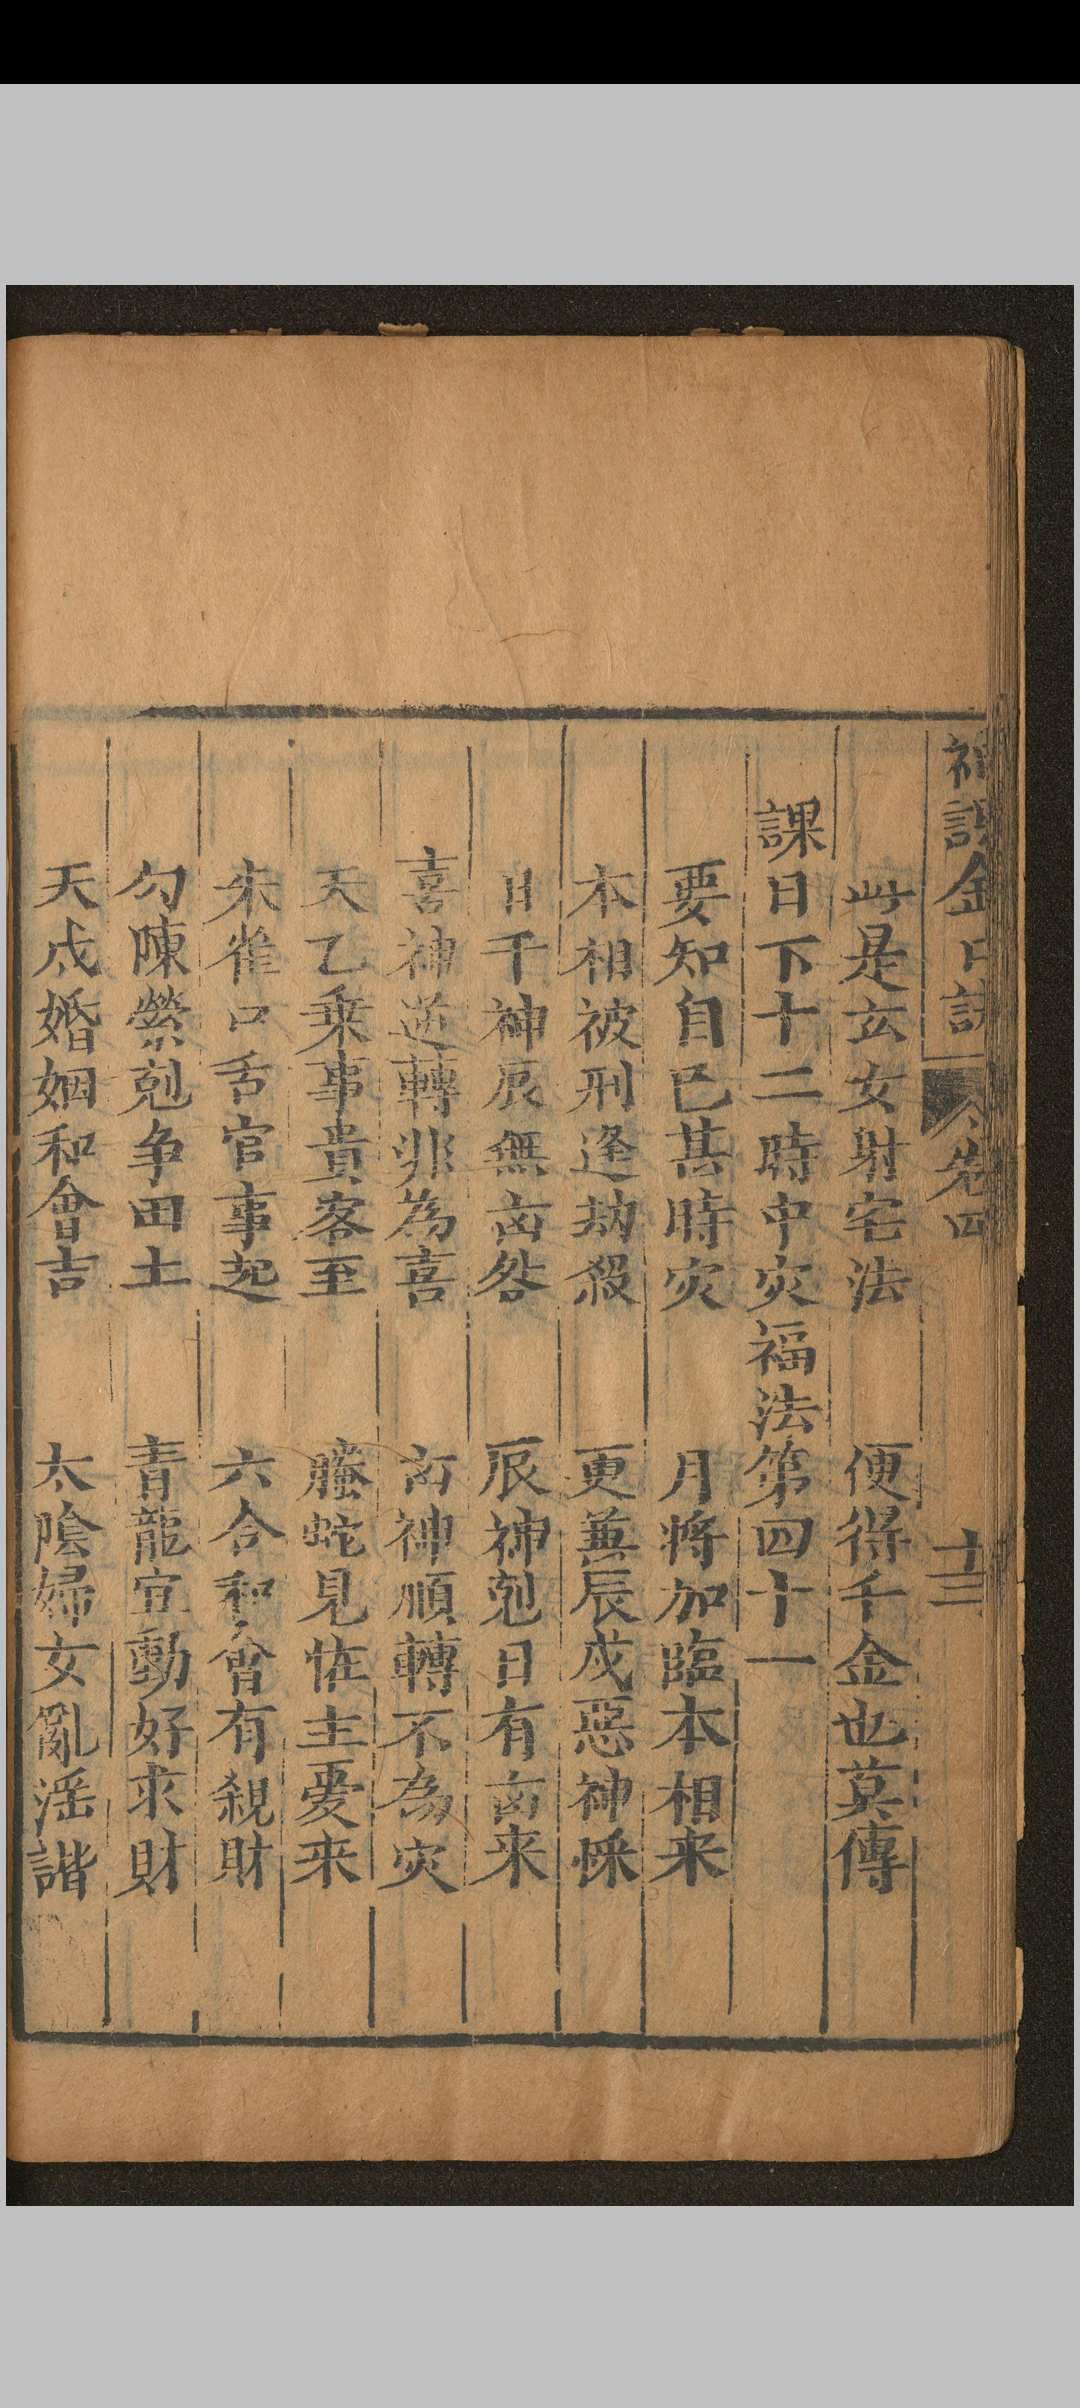 神課金口訣 卷四 十三
此是玄女射宅法 便得千金也莫傳
課日下十二時中灾福法第四十一
要知自己其時灾 月將加臨本相来
本相被刑逢刼殺 更兼辰戍惡神侎
日干神辰無凶咎 辰神剋日有凶来
喜神逆轉非為喜 凶神順轉不為灾
天乙乗事貴客至 螣蛇見恠主憂来
朱雀口舌官事起 六合和會有親財
勾陳縈剋争田土 青龍宜動好求財
天戍婚姻和會吉 太陰婦女亂滛諧